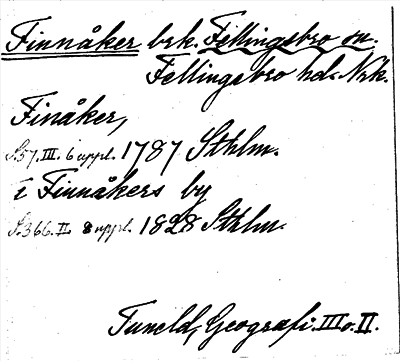 Finnåker brk. Fellingsbro sn.
Fellingsbro hd. Nrk.
Finåker,
S.57. III. 6 uppl. 1787 Sthlm.
i Finnåkers by
S.366. II. 8 uppl. 1828 Sthlm.
Tuneld, Geografi. III o. II.